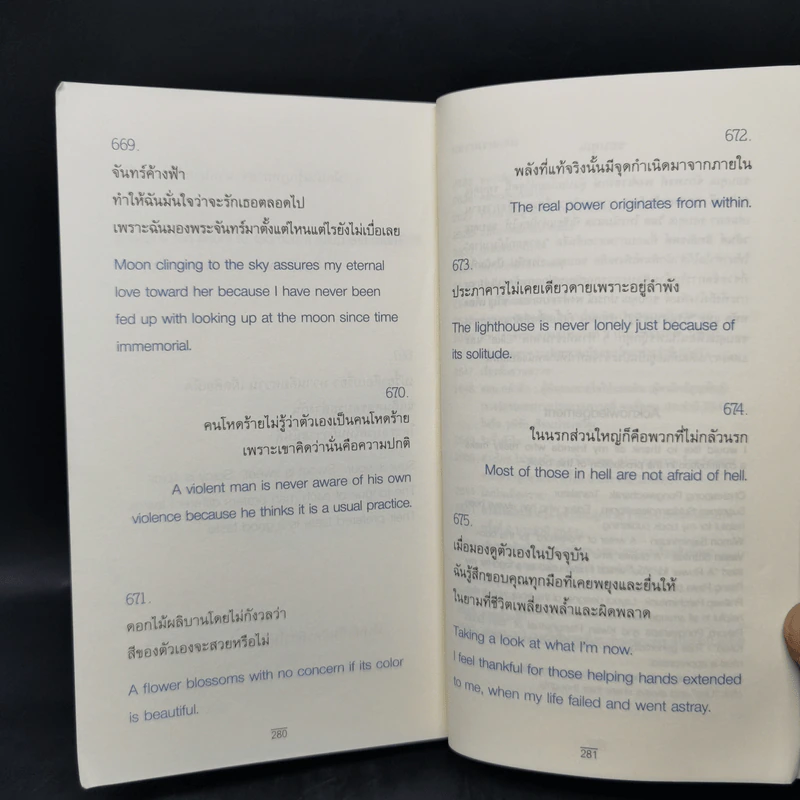 669.
จันทร์ค้างฟ้า
ทำให้ฉันมั่นใจว่าจะรักเธอตลอดไป
เพราะฉันมองพระจันทร์มาตั้งแต่ไหนแต่ไรยังไม่เบื่อเลย
Moon clinging to the sky assures my eternal
love toward her because I have never been
fed up with looking up at the moon since time
immemorial.
670.
คนโหดร้ายไม่รู้ว่าตัวเองเป็นคนโหดร้าย
เพราะเขาคิดว่านั่นคือความปกติ
A violent man is never aware of his own
violence because he thinks it is a usual practice.
671.
ดอกไม้ผลิบานโดยไม่กังวลว่า
สีของตัวเองจะสวยหรือไม่
A flower blossoms with no concern if its color
is beautiful.
280
672.
พลังที่แท้จริงนั้นมีจุดกำเนิดมาจากภายใน
The real power originates from within.
673.
ประภาคารไม่เคยเดียวดายเพราะอยู่ลำพัง
The lighthouse is never lonely just because of
its solitude.
674.
ในนรกส่วนใหญ่ก็คือพวกที่ไม่กลัวนรก
Most of those in hell are not afraid of hell.
675.
เมื่อมองดูตัวเองในปัจจุบัน
ฉันรู้สึกขอบคุณทุกมือที่เคยพยุงและยื่นให้
ในยามที่ชีวิตเพลี่ยงพล้ำและผิดพลาด
Taking a look at what I'm now.
I feel thankful for those helping hands extended
to me, when my life failed and went astray.
281